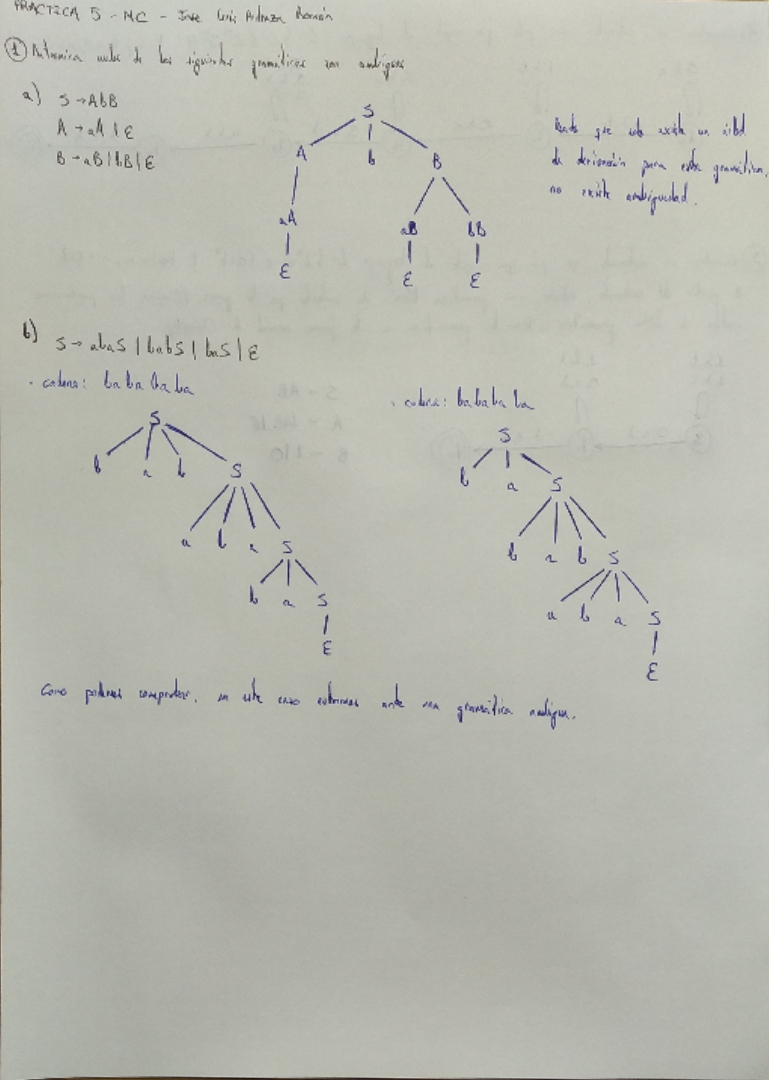 PRACTICA 5 - MC - Jose Luis Pedraza Román
① Determina cuales de las siguientes gramáticas son ambiguas
a) S → AbB
A → aA | ε
B → aB | bB | ε
S
A b B
aA aB bB
ε ε ε
Dado que solo existe un árbol
de derivación para esta gramática,
no existe ambiguedad.
b) S → abaS | babS | baS | ε
· cadena: bababaẞa
· cadena: babababa
S
b a b S
a b a S
b a S
ε
S
b a S
b a b S
a b a S
ε
Como podemos comprobar, en este caso estamos ante una gramática ambigua.